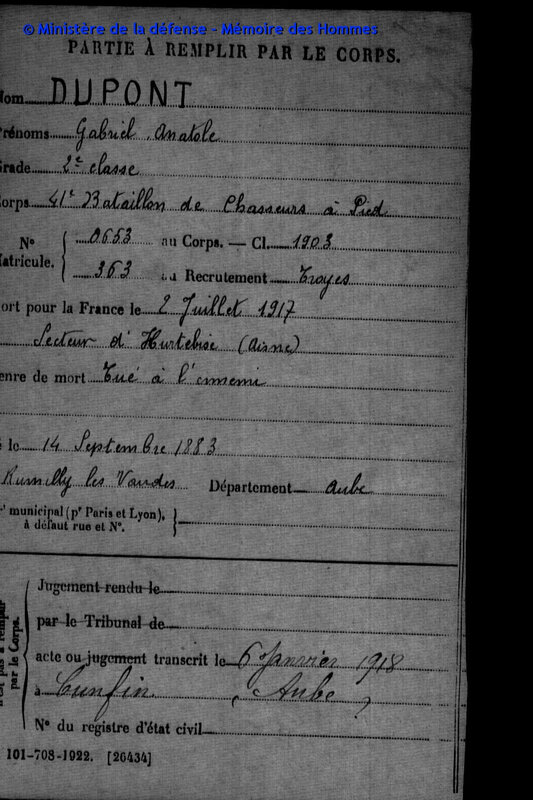 © Ministère de la défense - Mémoire des Hommes
PARTIE À REMPLIR PAR LE CORPS.
Nom DUPONT
Prénoms Gabriel Anatole
Grade 2e classe
Corps 41e Bataillon de Chasseurs à Pied
N° Matricule. 0653 au Corps. — Cl. 1903
363 au Recrutement Troyes
Mort pour la France le 2 Juillet 1917
Secteur d'Hurtebise (Aisne)
Genre de mort Tué à l'ennemi
Né le 14 Septembre 1883
Rumilly les Vaudes Département Aube
r' municipal (pr Paris et Lyon),
à défaut rue et N°.
Jugement rendu le
par le Tribunal de
acte ou jugement transcrit le 6 Janvier 1918
à Cunfin (Aube)
N° du registre d'état civil
n'est pas à remplir
par le Corps.
101-708-1922. [26434]